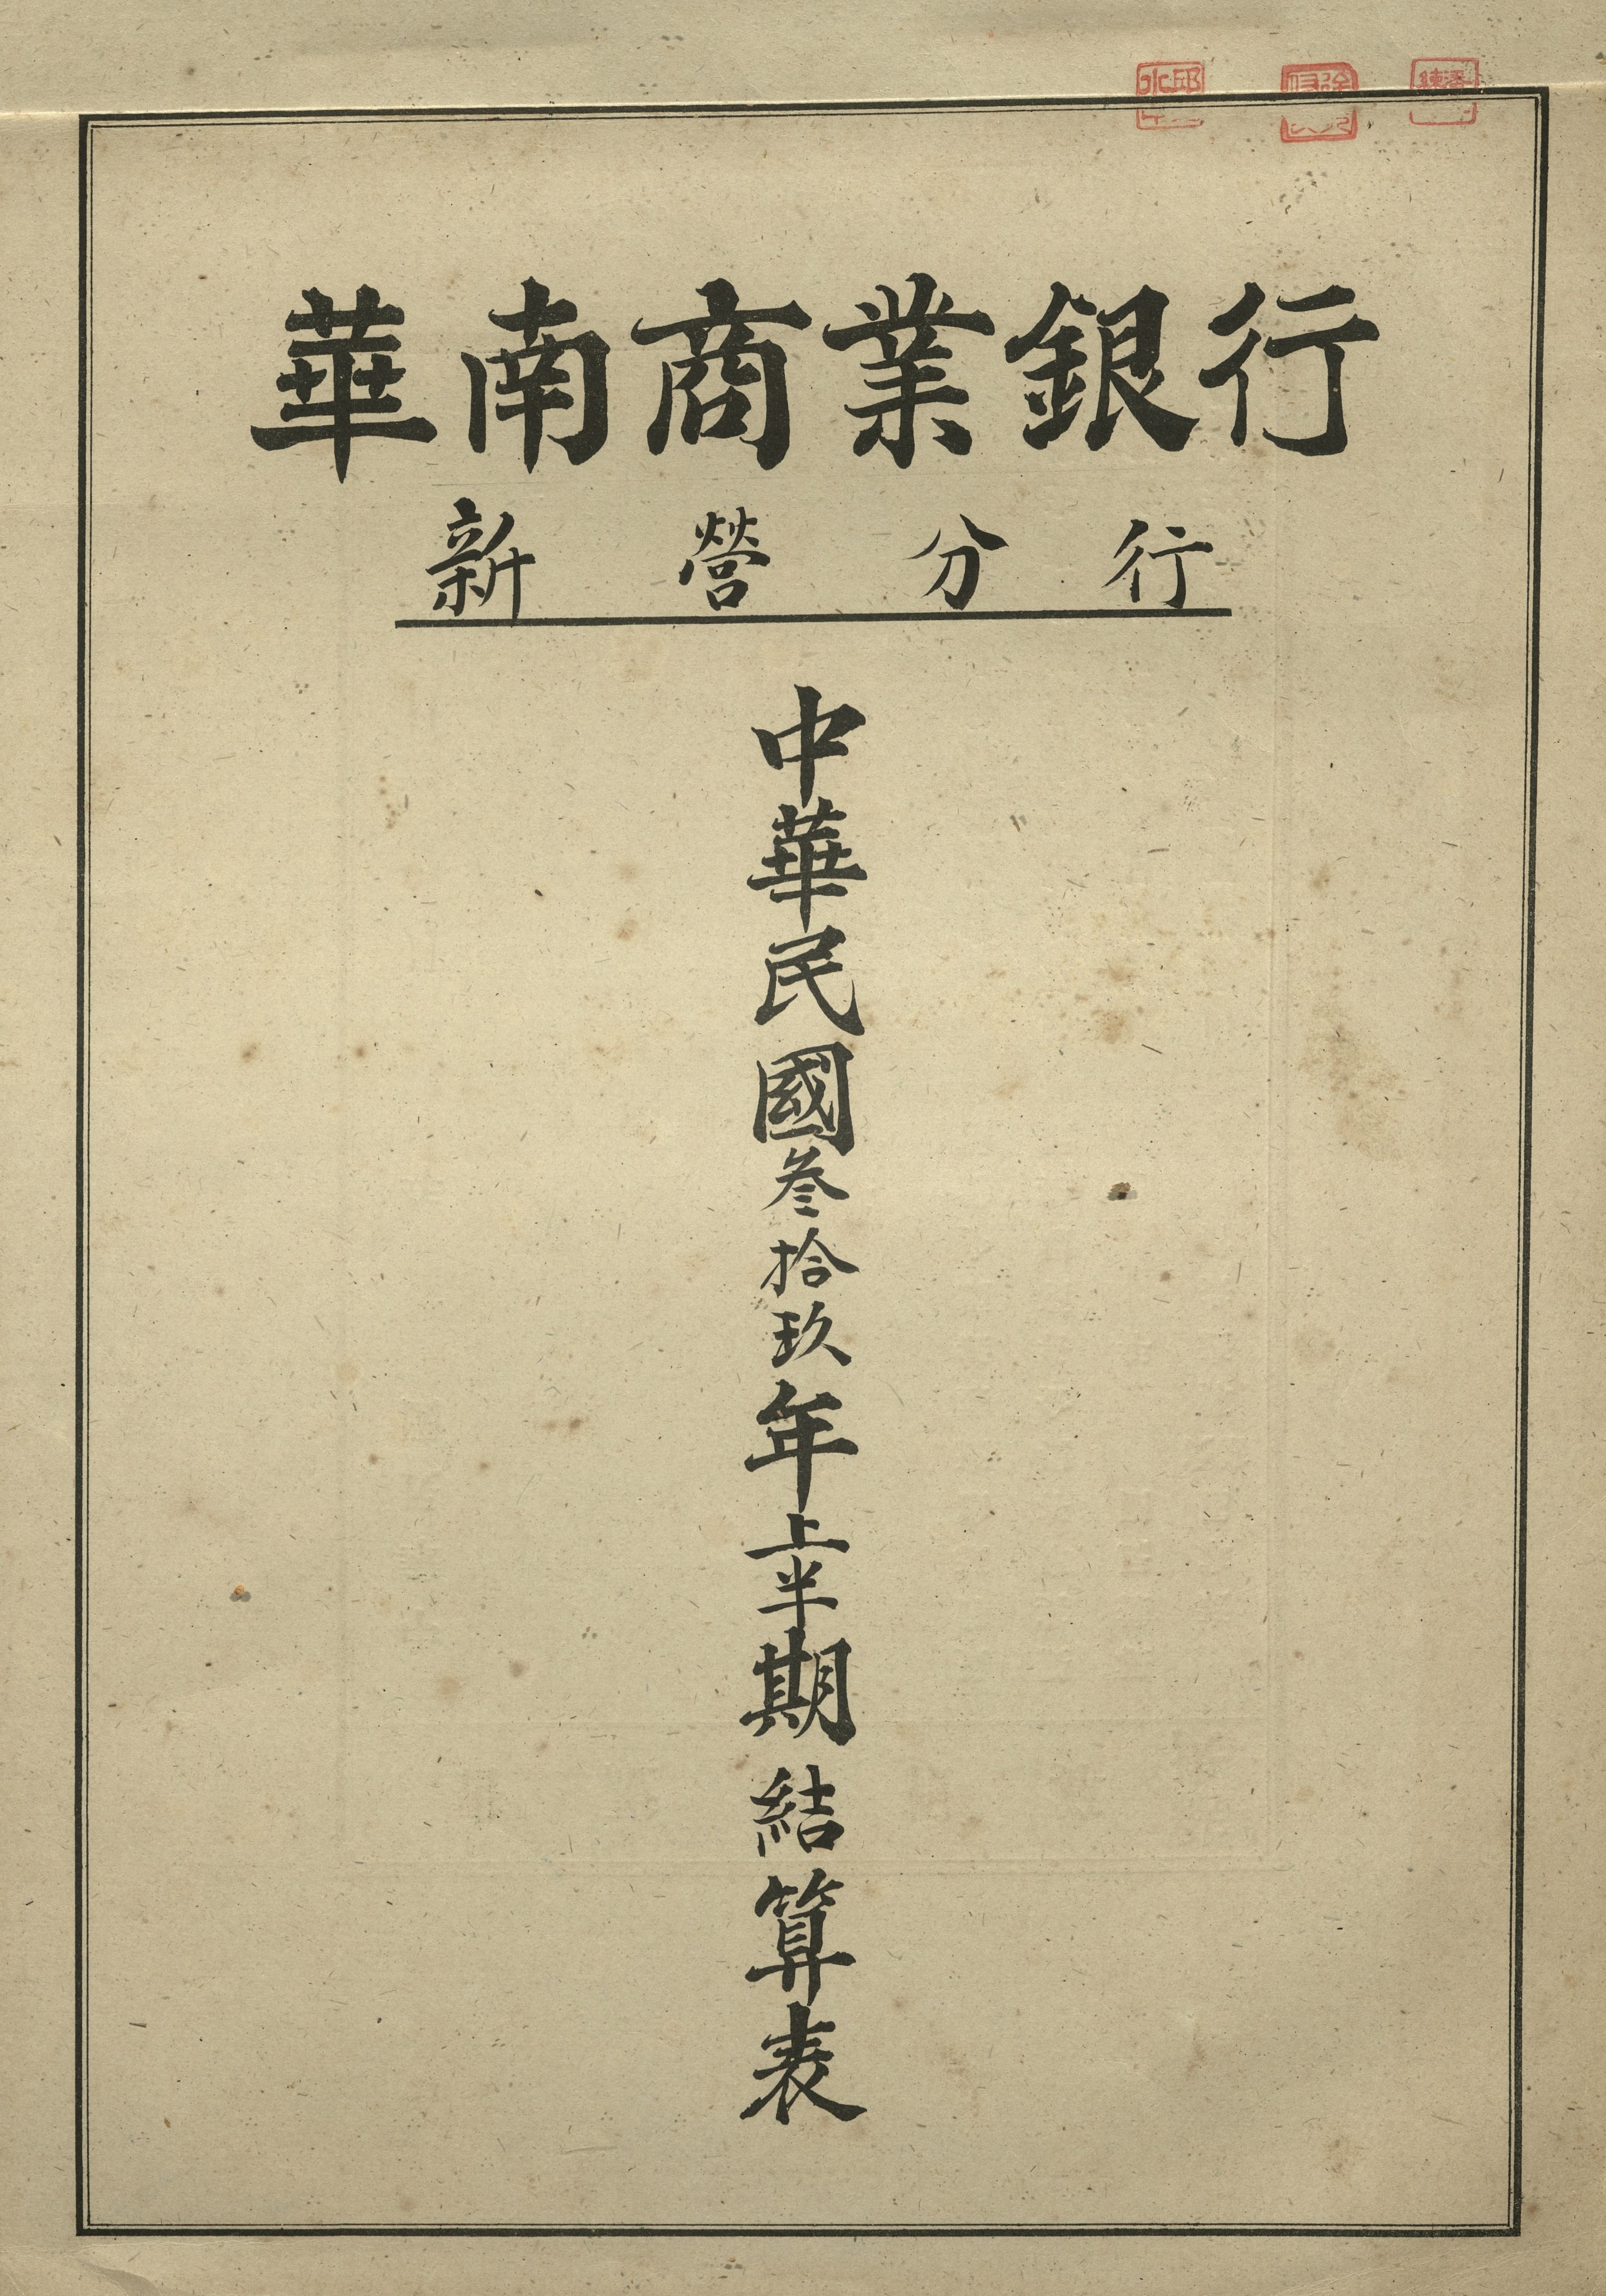 華南商業銀行
新營分行
中華民國叁拾玖年上半期結算表